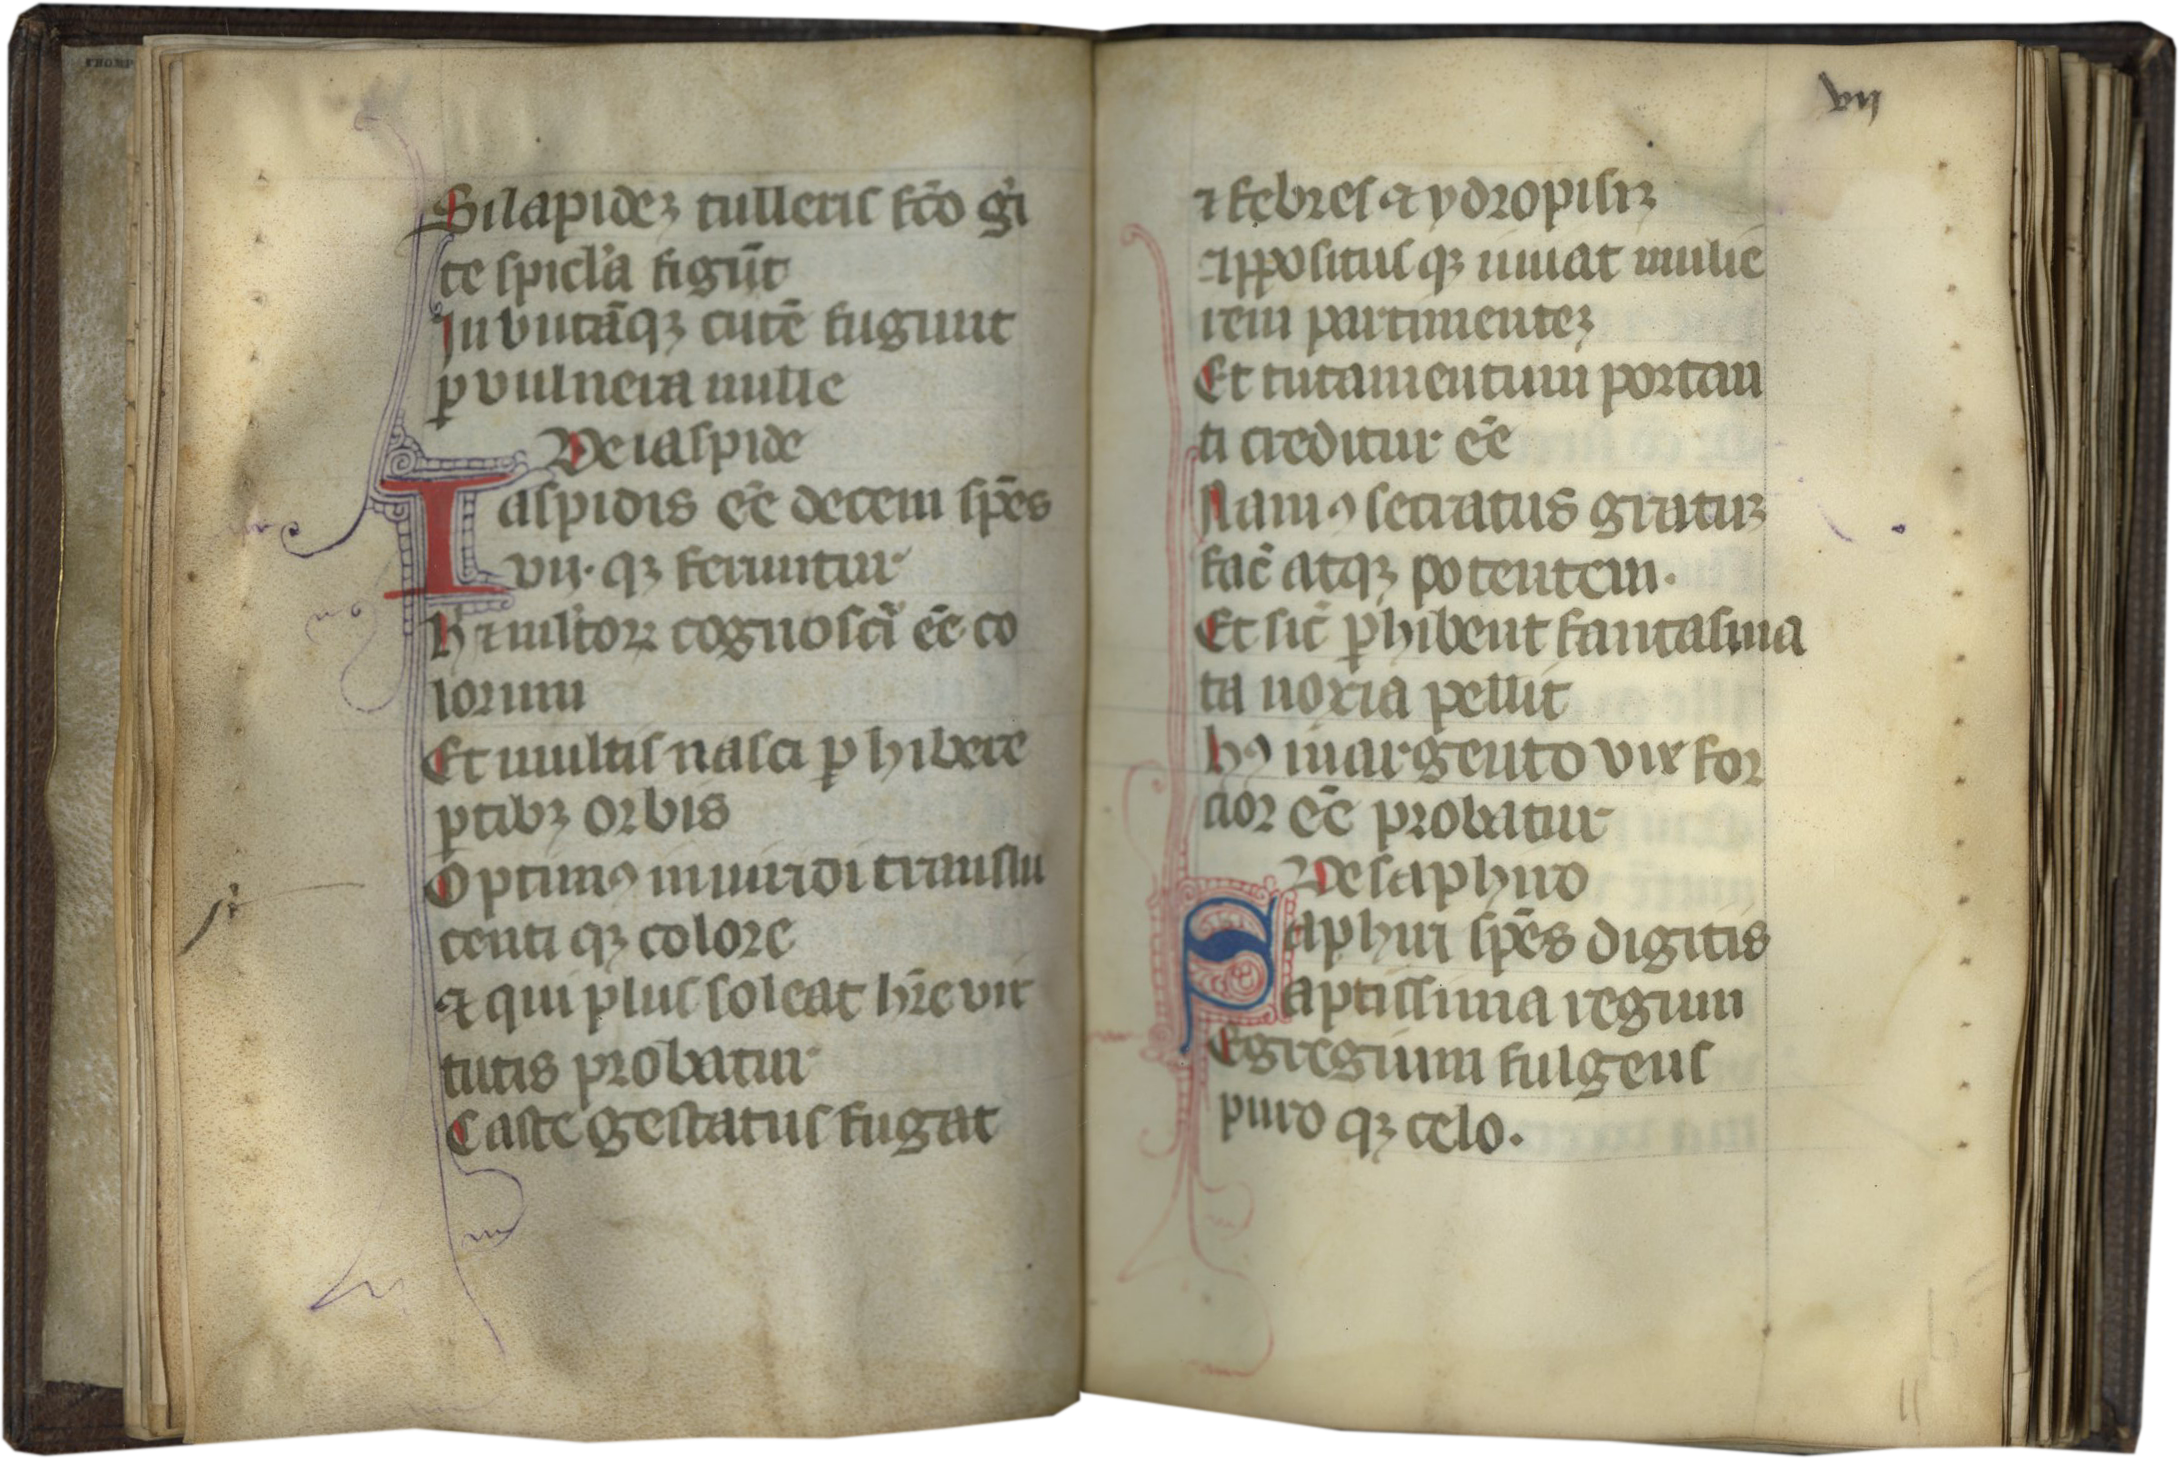 THOMP
Silapideꝫ tulleris ſc̄o gi
te spicl'a figūt
In vutāqꝫ cutē fugiunt
ꝑ vulnera mille
De iaspide
Iaspidis eē decem sp̄es
vij· qꝫ feruntur
H ⁊ mĺtoꝝ cognosci eē co
lorum
Et multis nasci ꝑhibete
ꝑtibꝫ orbis
Optimꝯ in viridi translu
centi qꝫ colore
Et qui plus soleat hr̄e vir
tutis probatur
Caste gestatus fugat
vij
⁊ febres et ydropisiꝫ
Appositus qꝫ iuuat mulie
rem parturienteꝫ
Et tutamentum portan
ti creditur eē
Nam ꝯsecratus gratuꝫ
fac̄ atqꝫ potentem.
Et sic̄ ꝑhibent fantasma
ta noxia pellit
Hꝯ in argento vix for
cior eē probatur
De saphiro
Saphiri sp̄es digitis
aptissima regum
Egregium fulgens
puro qꝫ celo.
11